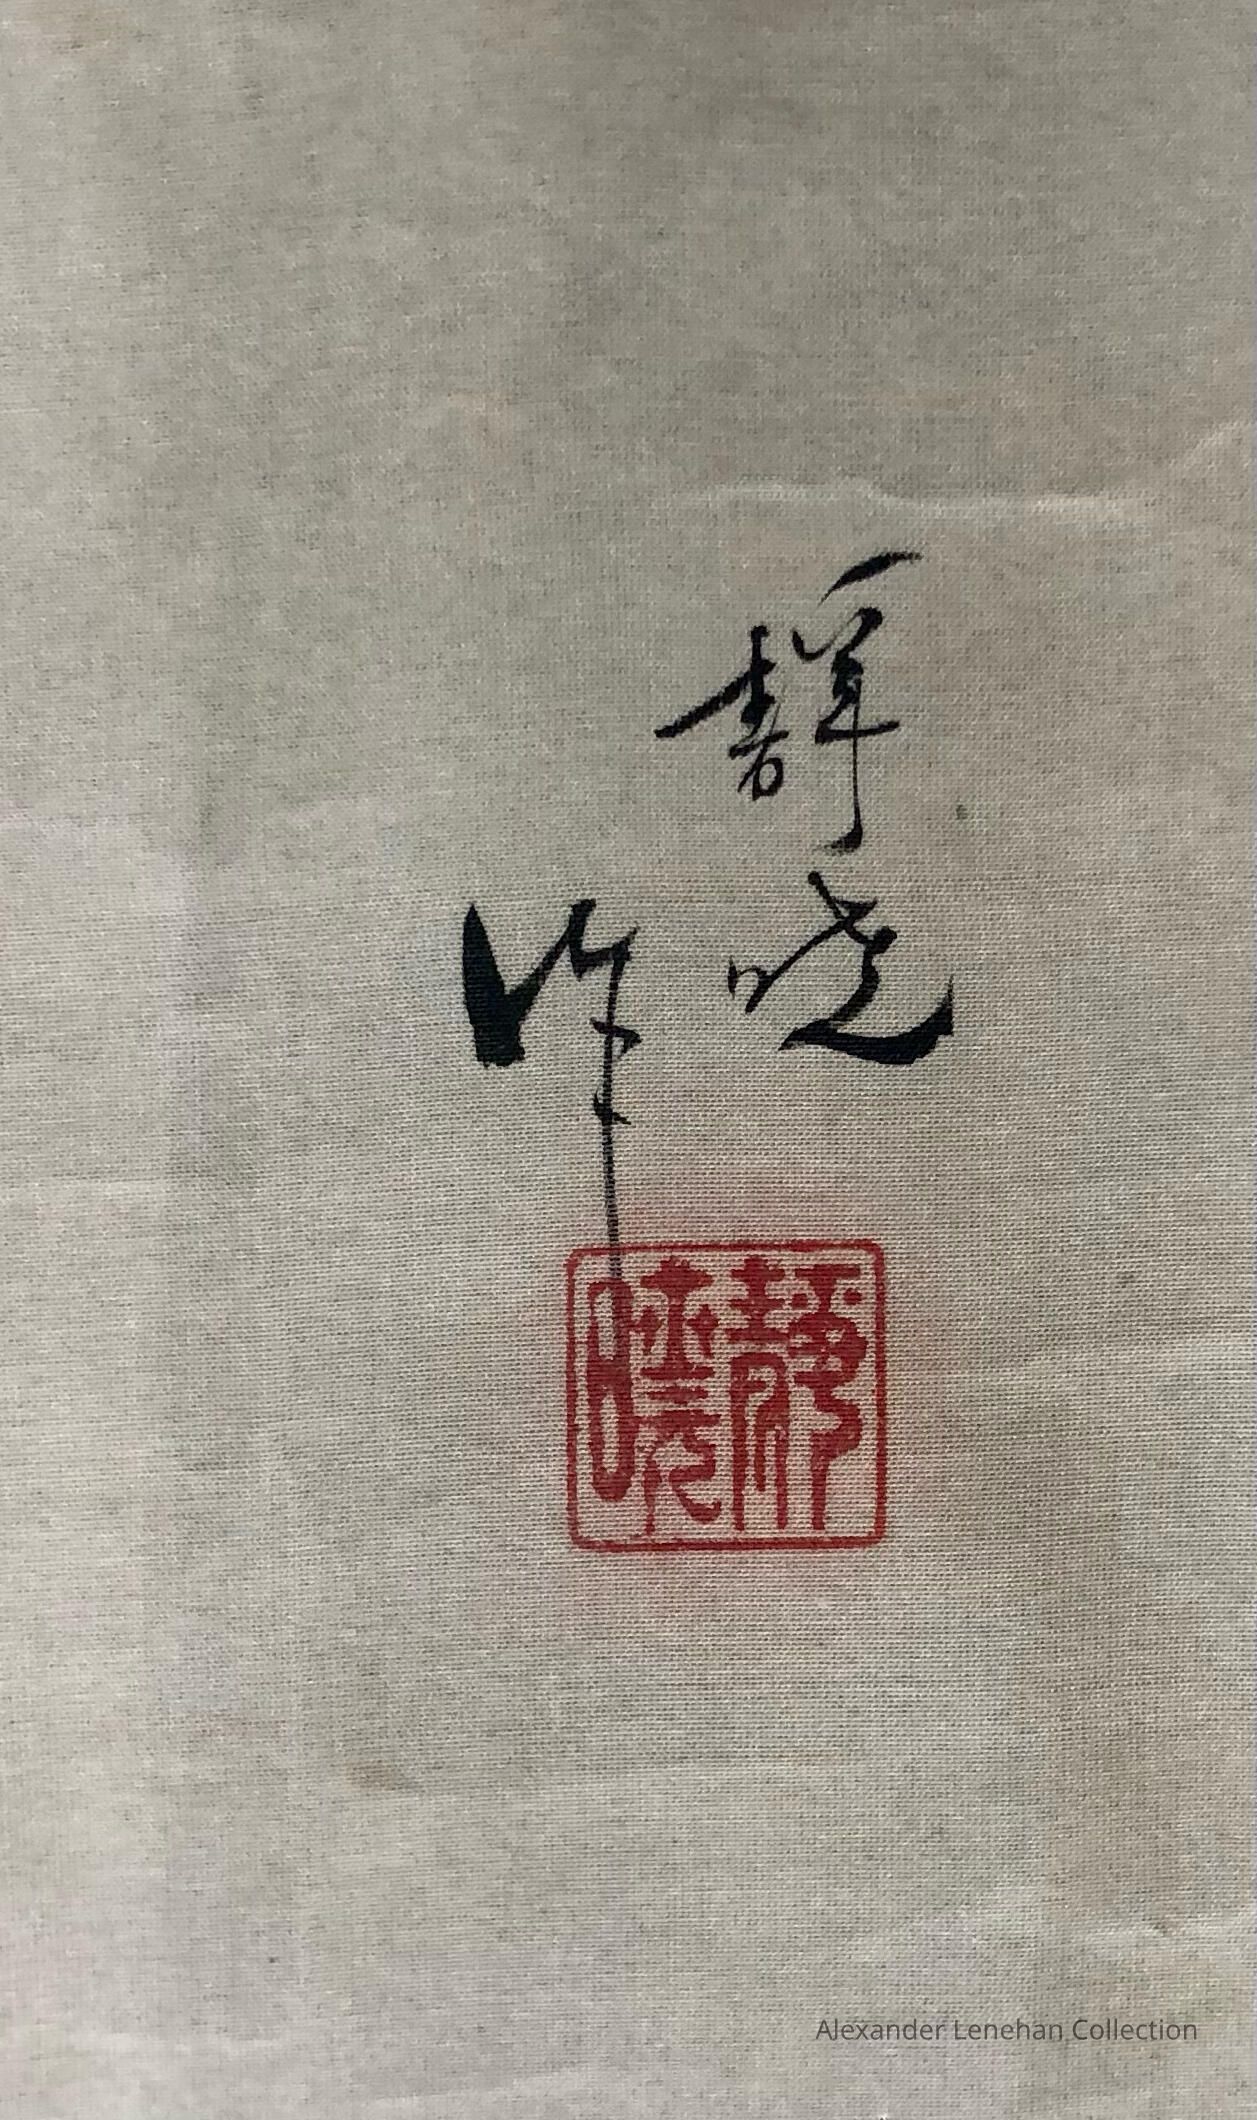 静暁
作
静暁
Alexander Lenehan Collection